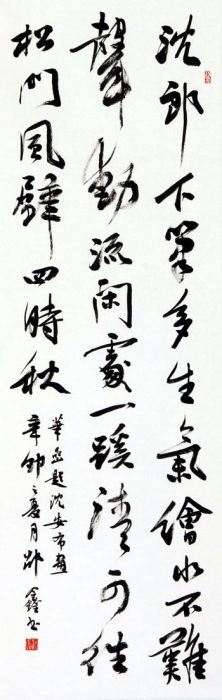 沈郎下筆多生氣繪水不難
聲動流閑處一蹊清可往
松門風壁四時秋
華嵒題沈安布畫
辛卯之夏月
鑫书